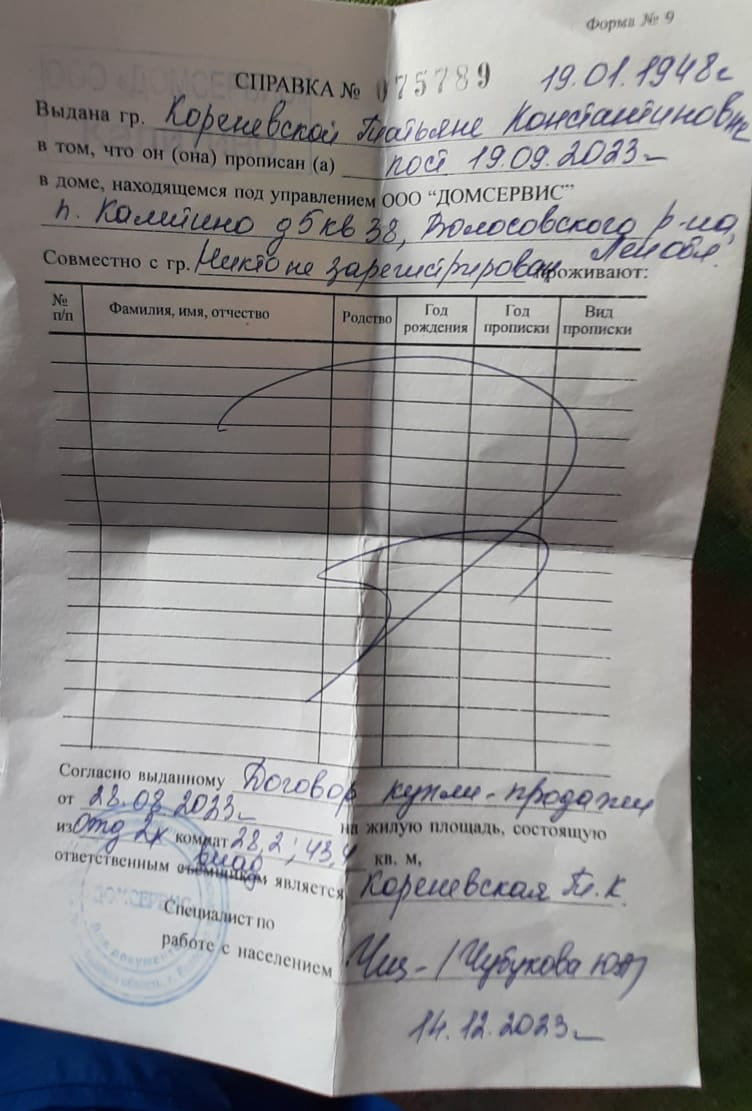 Форма № 9
СПРАВКА № 075789 19.01.1948г
Выдана гр. Кореневской Татьяне Константиновне
в том, что он (она) прописан (а) пост 19.09.2023г
в доме, находящемся под управлением ООО “ДОМСЕРВИС”
п. Калитино д5кв38, Волосовского р-на, Лен обл.
Совместно с гр. Никто не зарегистрирован проживают:
№ п/п Фамилия, имя, отчество Родство Год рождения Год прописки Вид прописки
Согласно выданному Договор купли-продажи
от 28.08.2023г на жилую площадь, состоящую
из Отд 2х комнат 28,2; 43,4 кв. м,
ответственным съемщиком является Кореневская Т.К.
ДОМСЕРВИС
Специалист по
работе с населением Чубукова
14.12.2023г